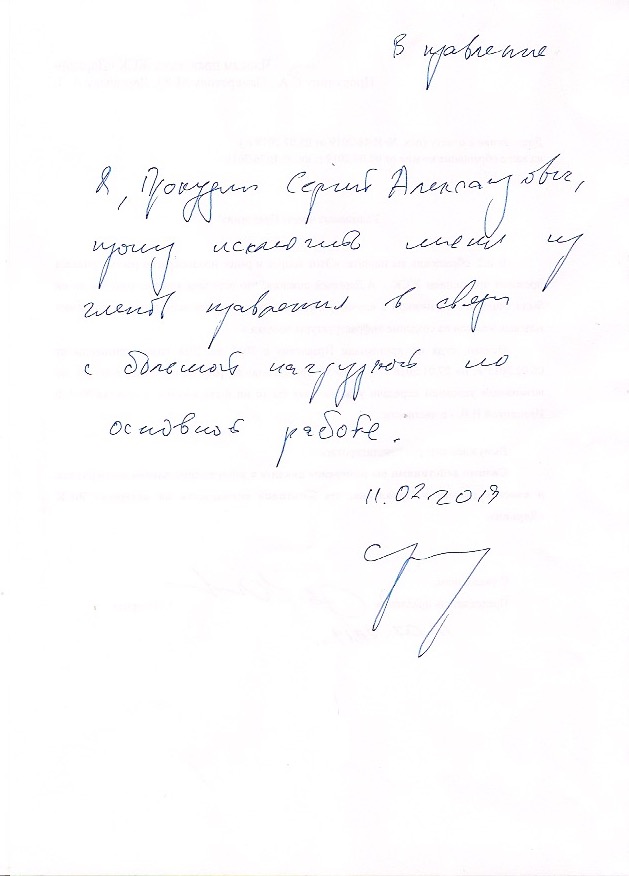 В правление
Я, Прокудин Сергей Александрович,
прошу исключить меня из
членов правления в связи
с большой нагрузкой по
основной работе.
11.02.2019